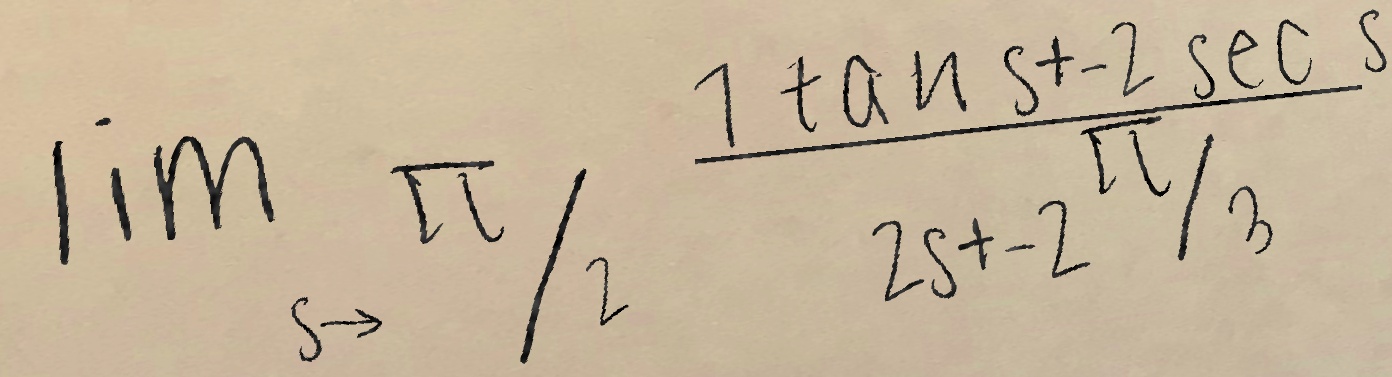 lim s→ π/2 (1 tan s + -2 sec s)/(2s + -2 π/3)